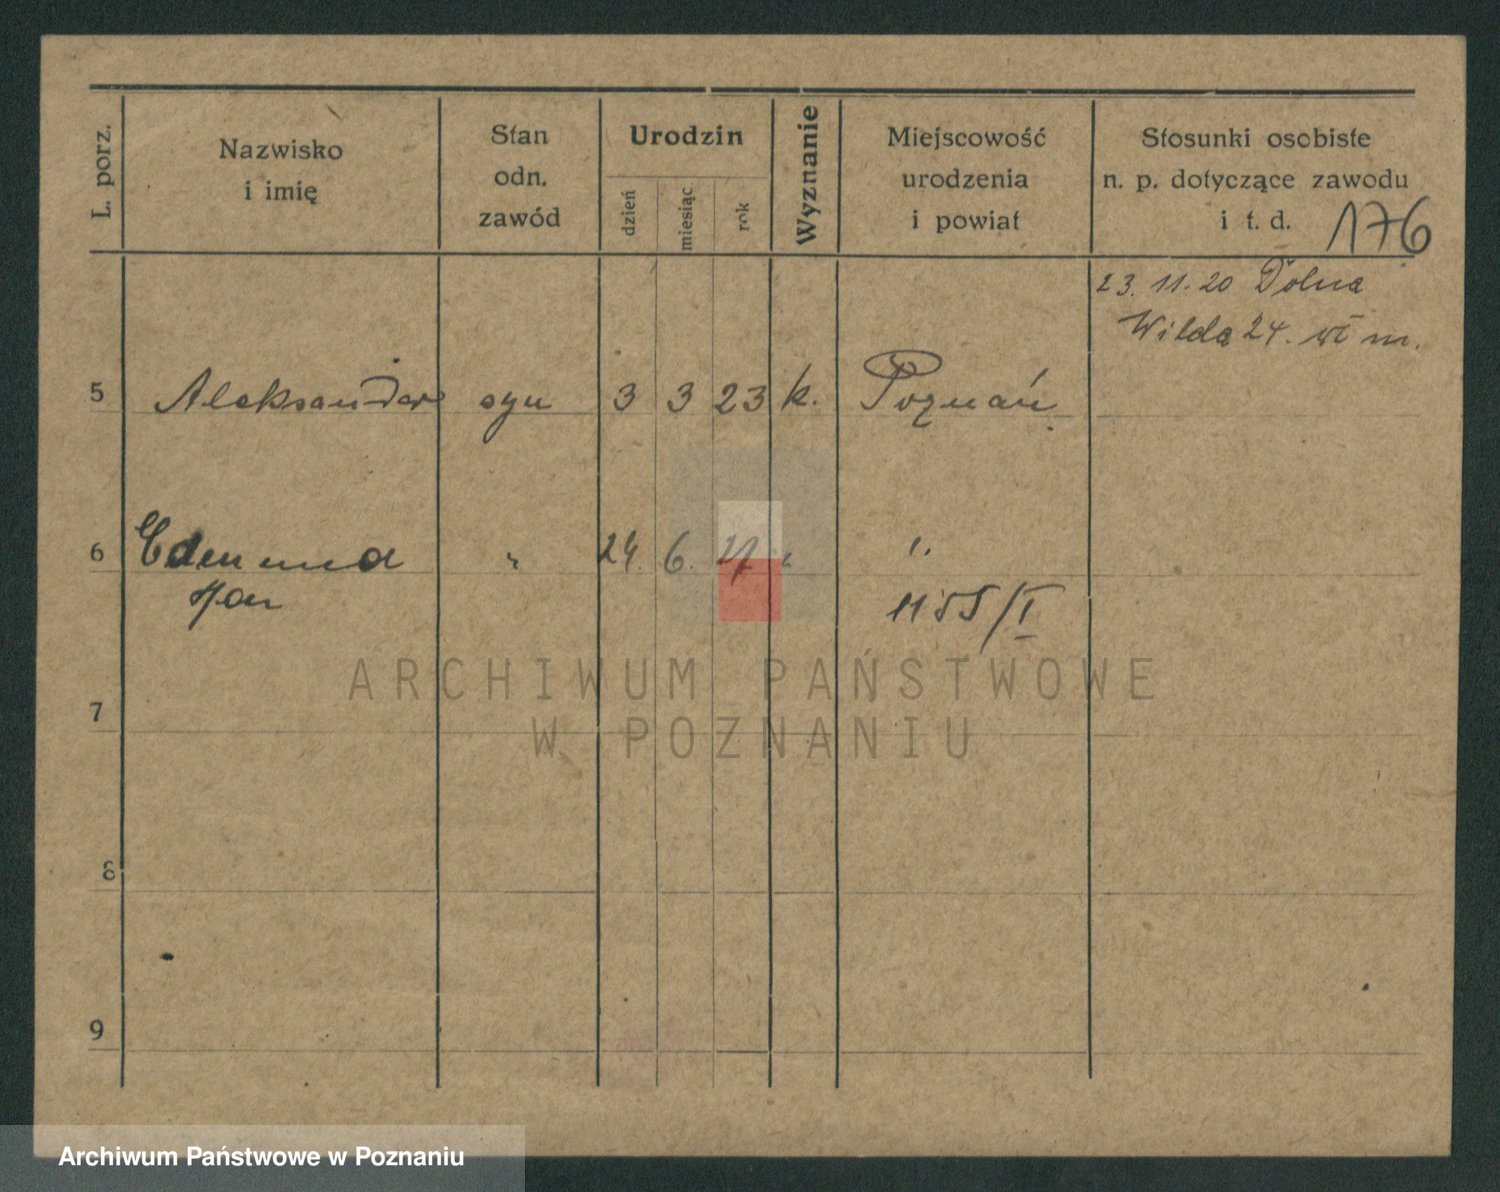 L. porz.
Nazwisko
i imię
Stan
odn.
zawód
Urodzin
dzień
miesiąc
rok
Wyznanie
Miejscowość
urodzenia
i powiat
Stosunki osobiste
n. p. dotyczące zawodu
i t. d.
176
23. 11. 20 Dolna
Wilda 24. m.
5 Aleksander syn 3 3 23 k. Poznań
6 Edmund " 24. 6. 27 " "
Jan
1155/I
7
8
9
ARCHIWUM PAŃSTWOWE
W POZNANIU
Archiwum Państwowe w Poznaniu